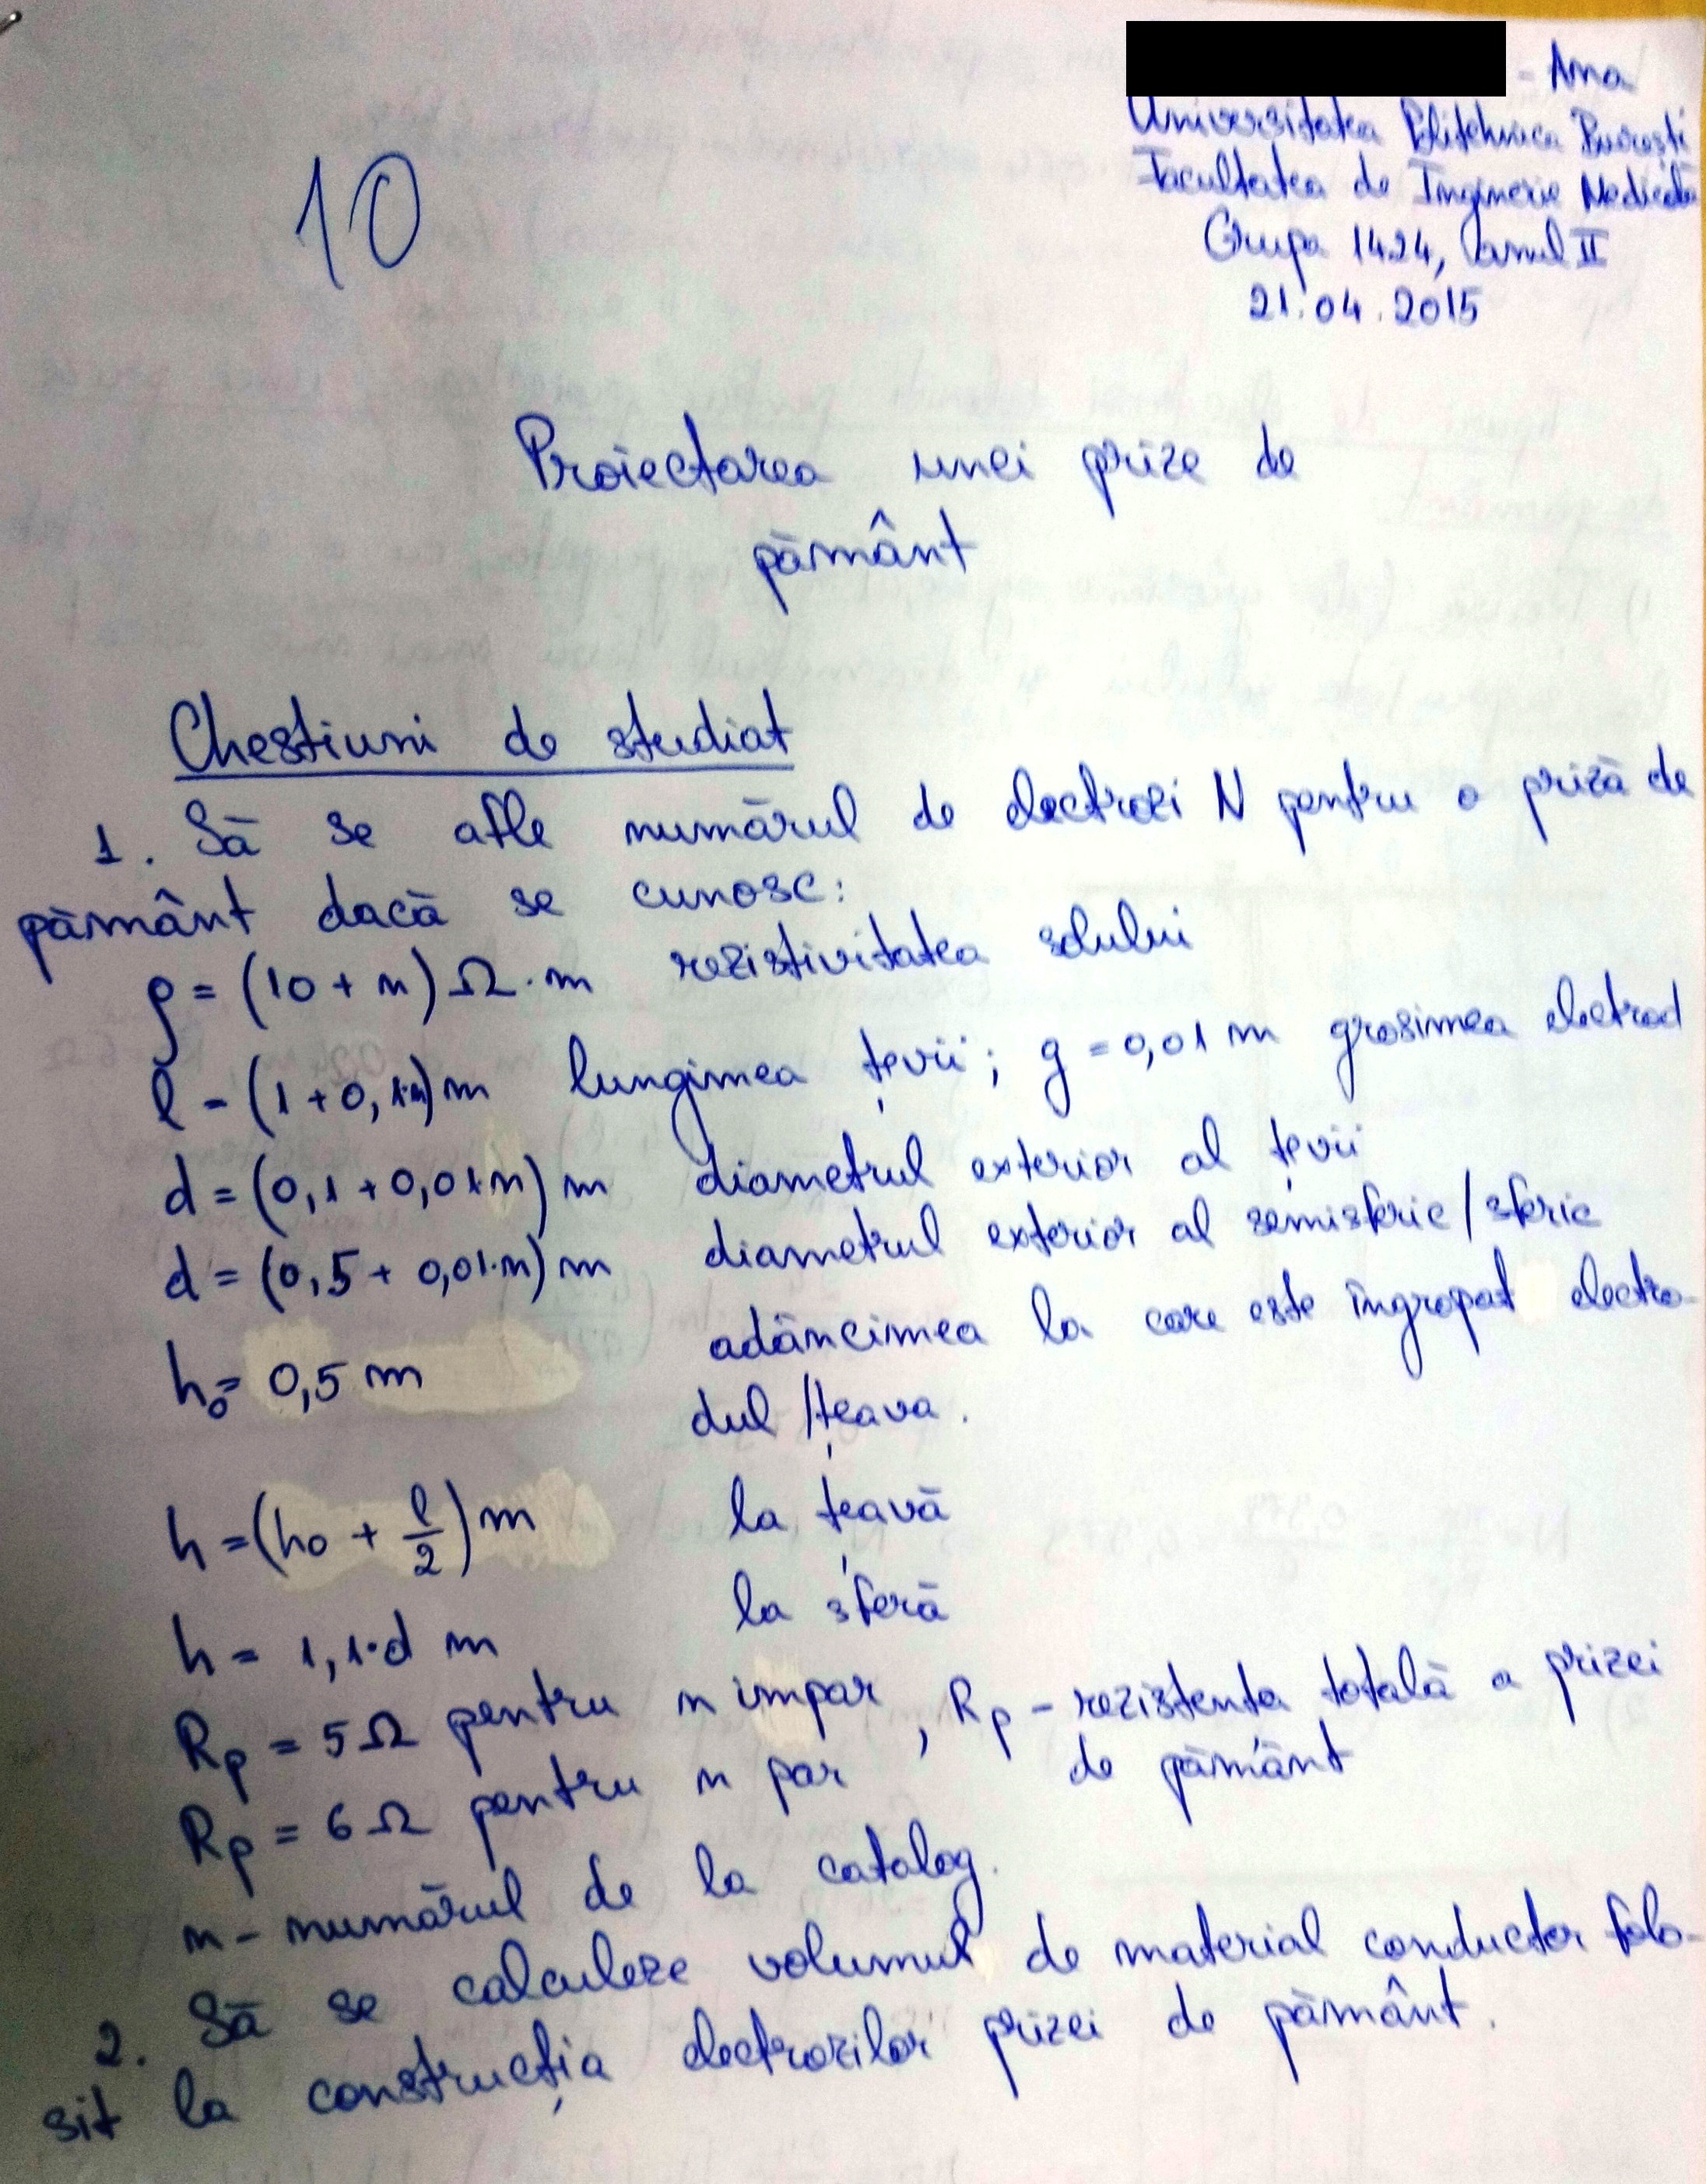 - Ana
Universitatea Politehnica București
Facultatea de Inginerie Medicală
Grupa 1424, anul II
21.04.2015
10
Proiectarea unei prize de
pământ
Chestiuni de studiat
1. Să se afle numărul de electrozi N pentru o priză de
pământ dacă se cunosc:
ρ = (10 + n) Ω·m rezistivitatea solului
l = (1 + 0,1·n) m lungimea țevii; g = 0,01 m grosimea electrod
d = (0,1 + 0,01·n) m diametrul exterior al țevii
d = (0,5 + 0,01·n) m diametrul exterior al semisferic/sferic
h₀ = 0,5 m adâncimea la care este îngropat electro-
dul/țeava.
h = (h₀ + l/2) m la țeavă
h = 1,1·d m la sferă
Rp = 5 Ω pentru n impar, Rp - rezistenta totală a prizei
Rp = 6 Ω pentru n par de pământ
n - numărul de la catalog.
2. Să se calculeze volumul de material conductor folo-
sit la construcția electrozilor prizei de pământ.